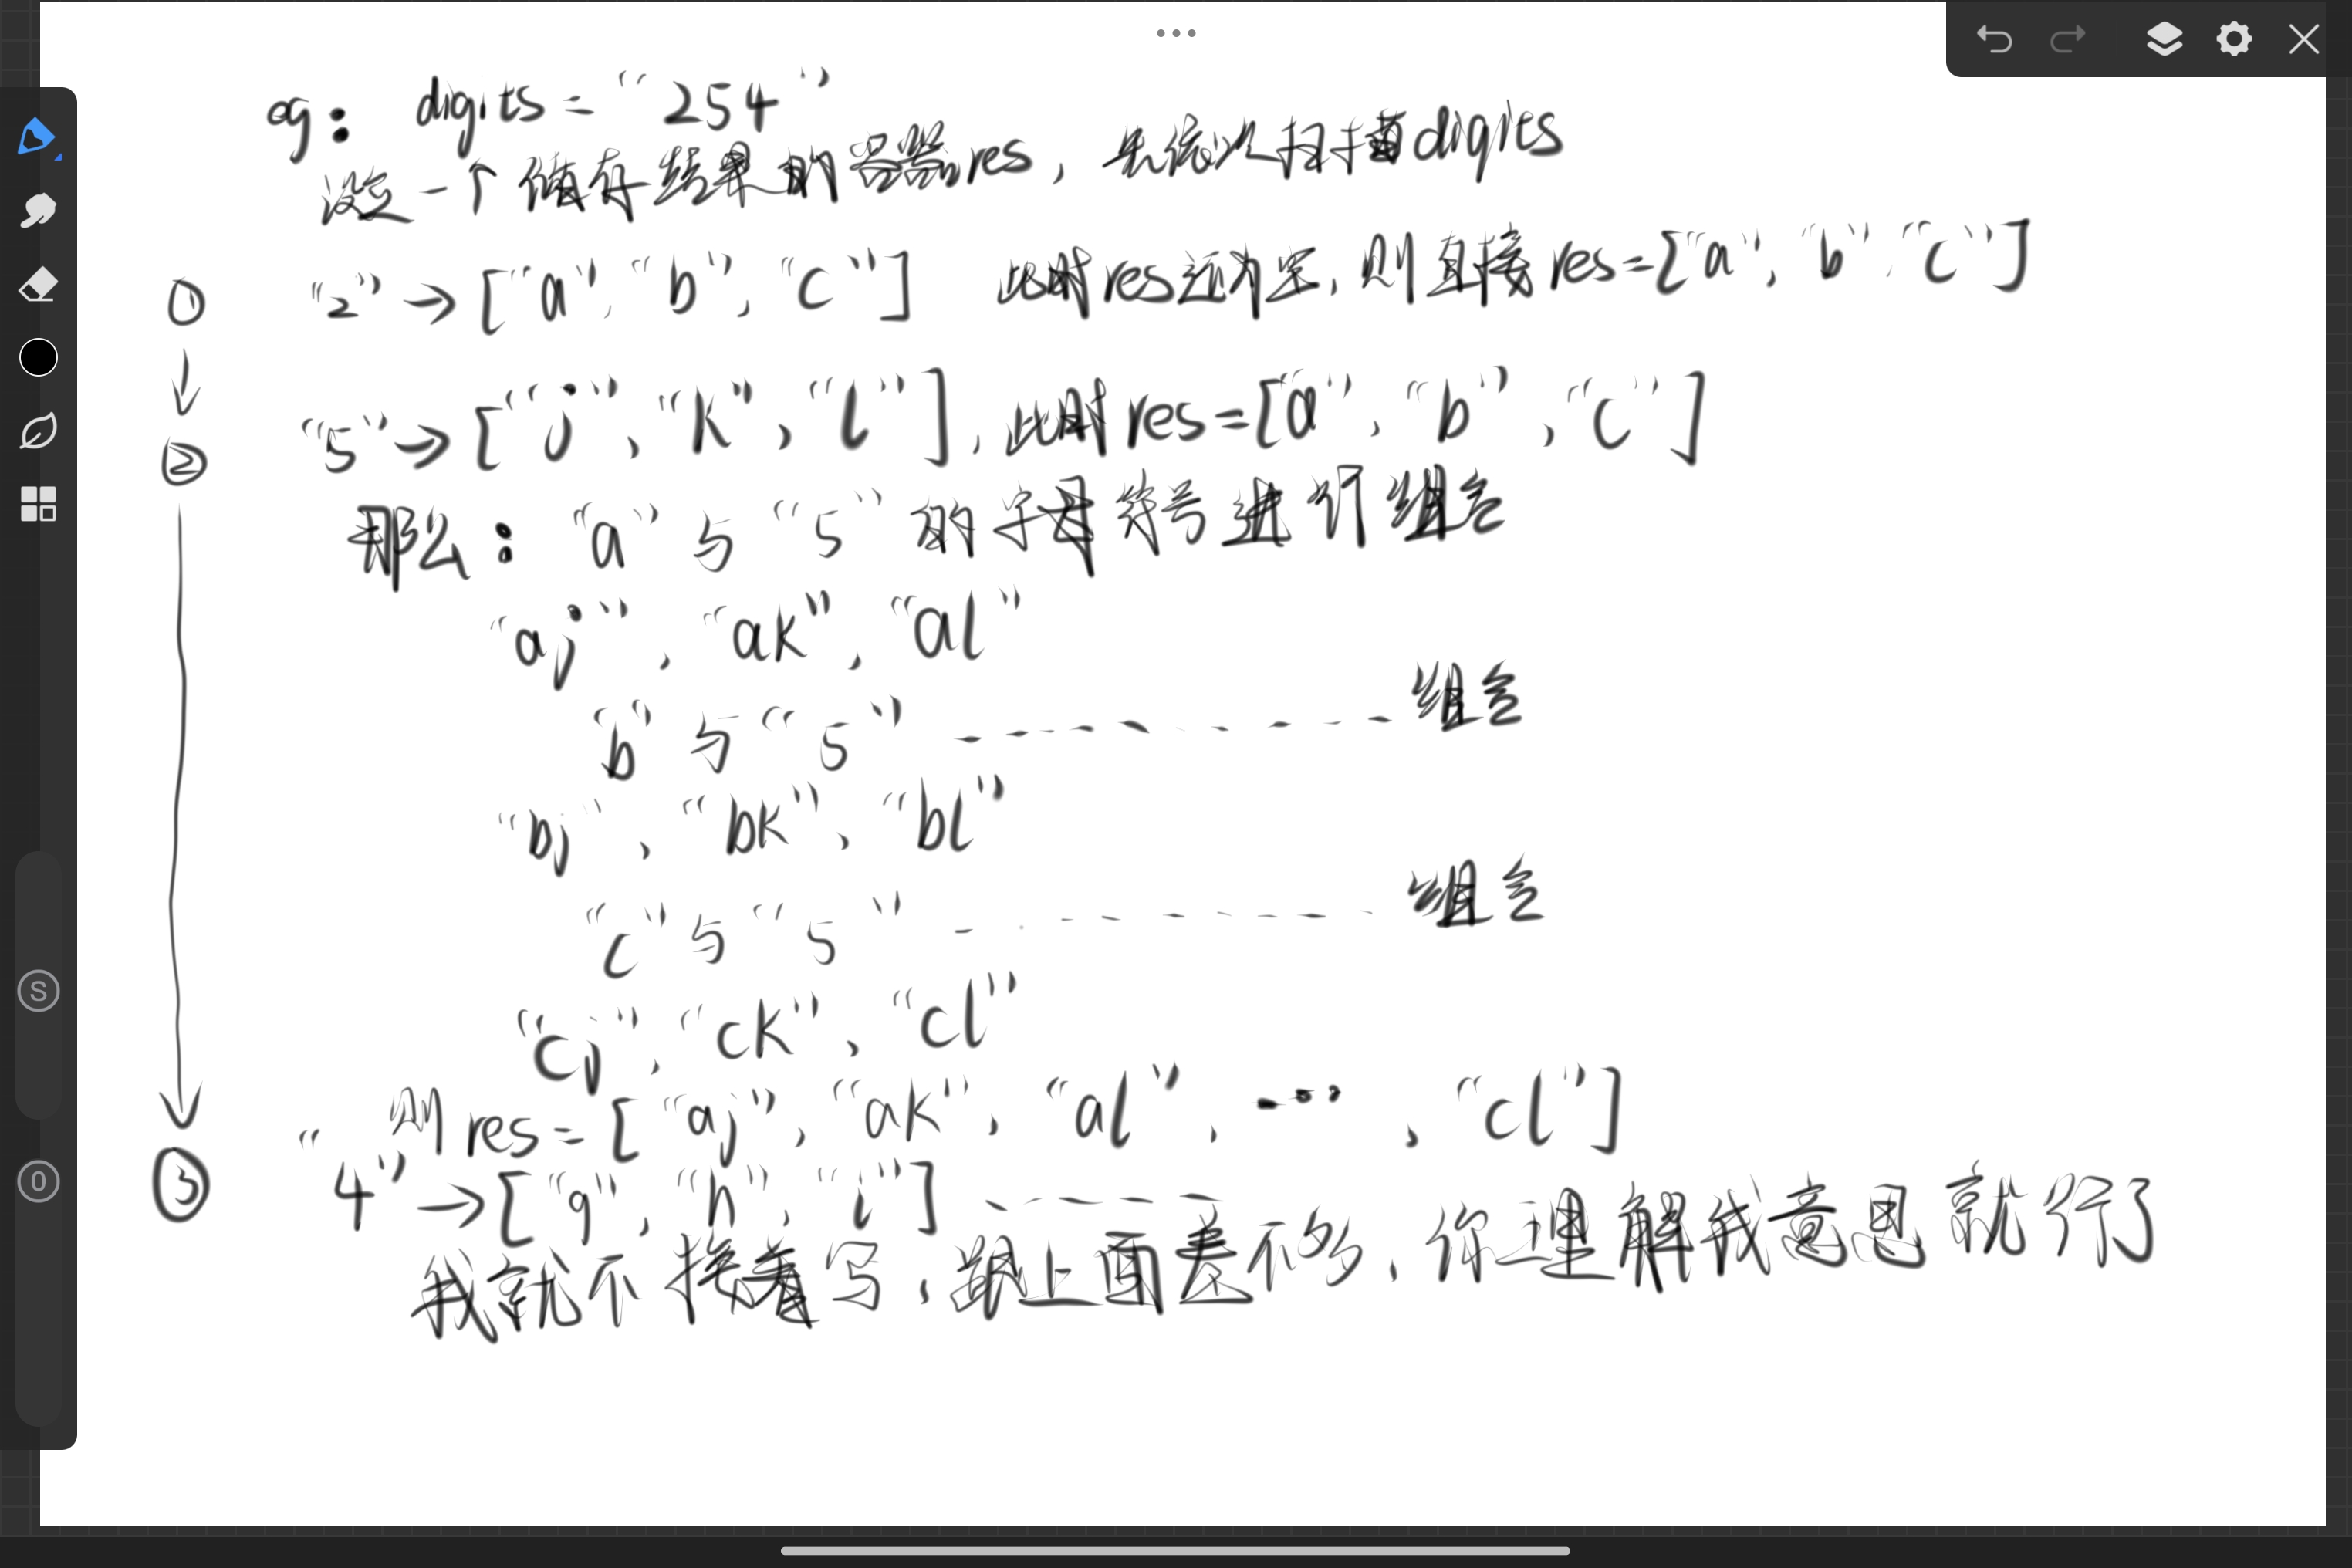 eg: digits = "254"
设定一个储存结果的容器res, 先依次扫描digits
① "2" → ["a", "b", "c"] 此时res还为空, 则直接res=["a", "b", "c"]
② "5" → ["j", "k", "l"], 此时res=["a", "b", "c"]
那么: "a" 与 "5" 的字母符号进行组合
"aj", "ak", "al"
"b" 与 "5" --------- 组合
"bj", "bk", "bl"
"c" 与 "5" --------- 组合
"cj", "ck", "cl"
则res=["aj", "ak", "al", ..., "cl"]
③ "4" → ["g", "h", "i"] ------
我就不接着写, 跟上面差不多, 你理解我意思就行了
S
O